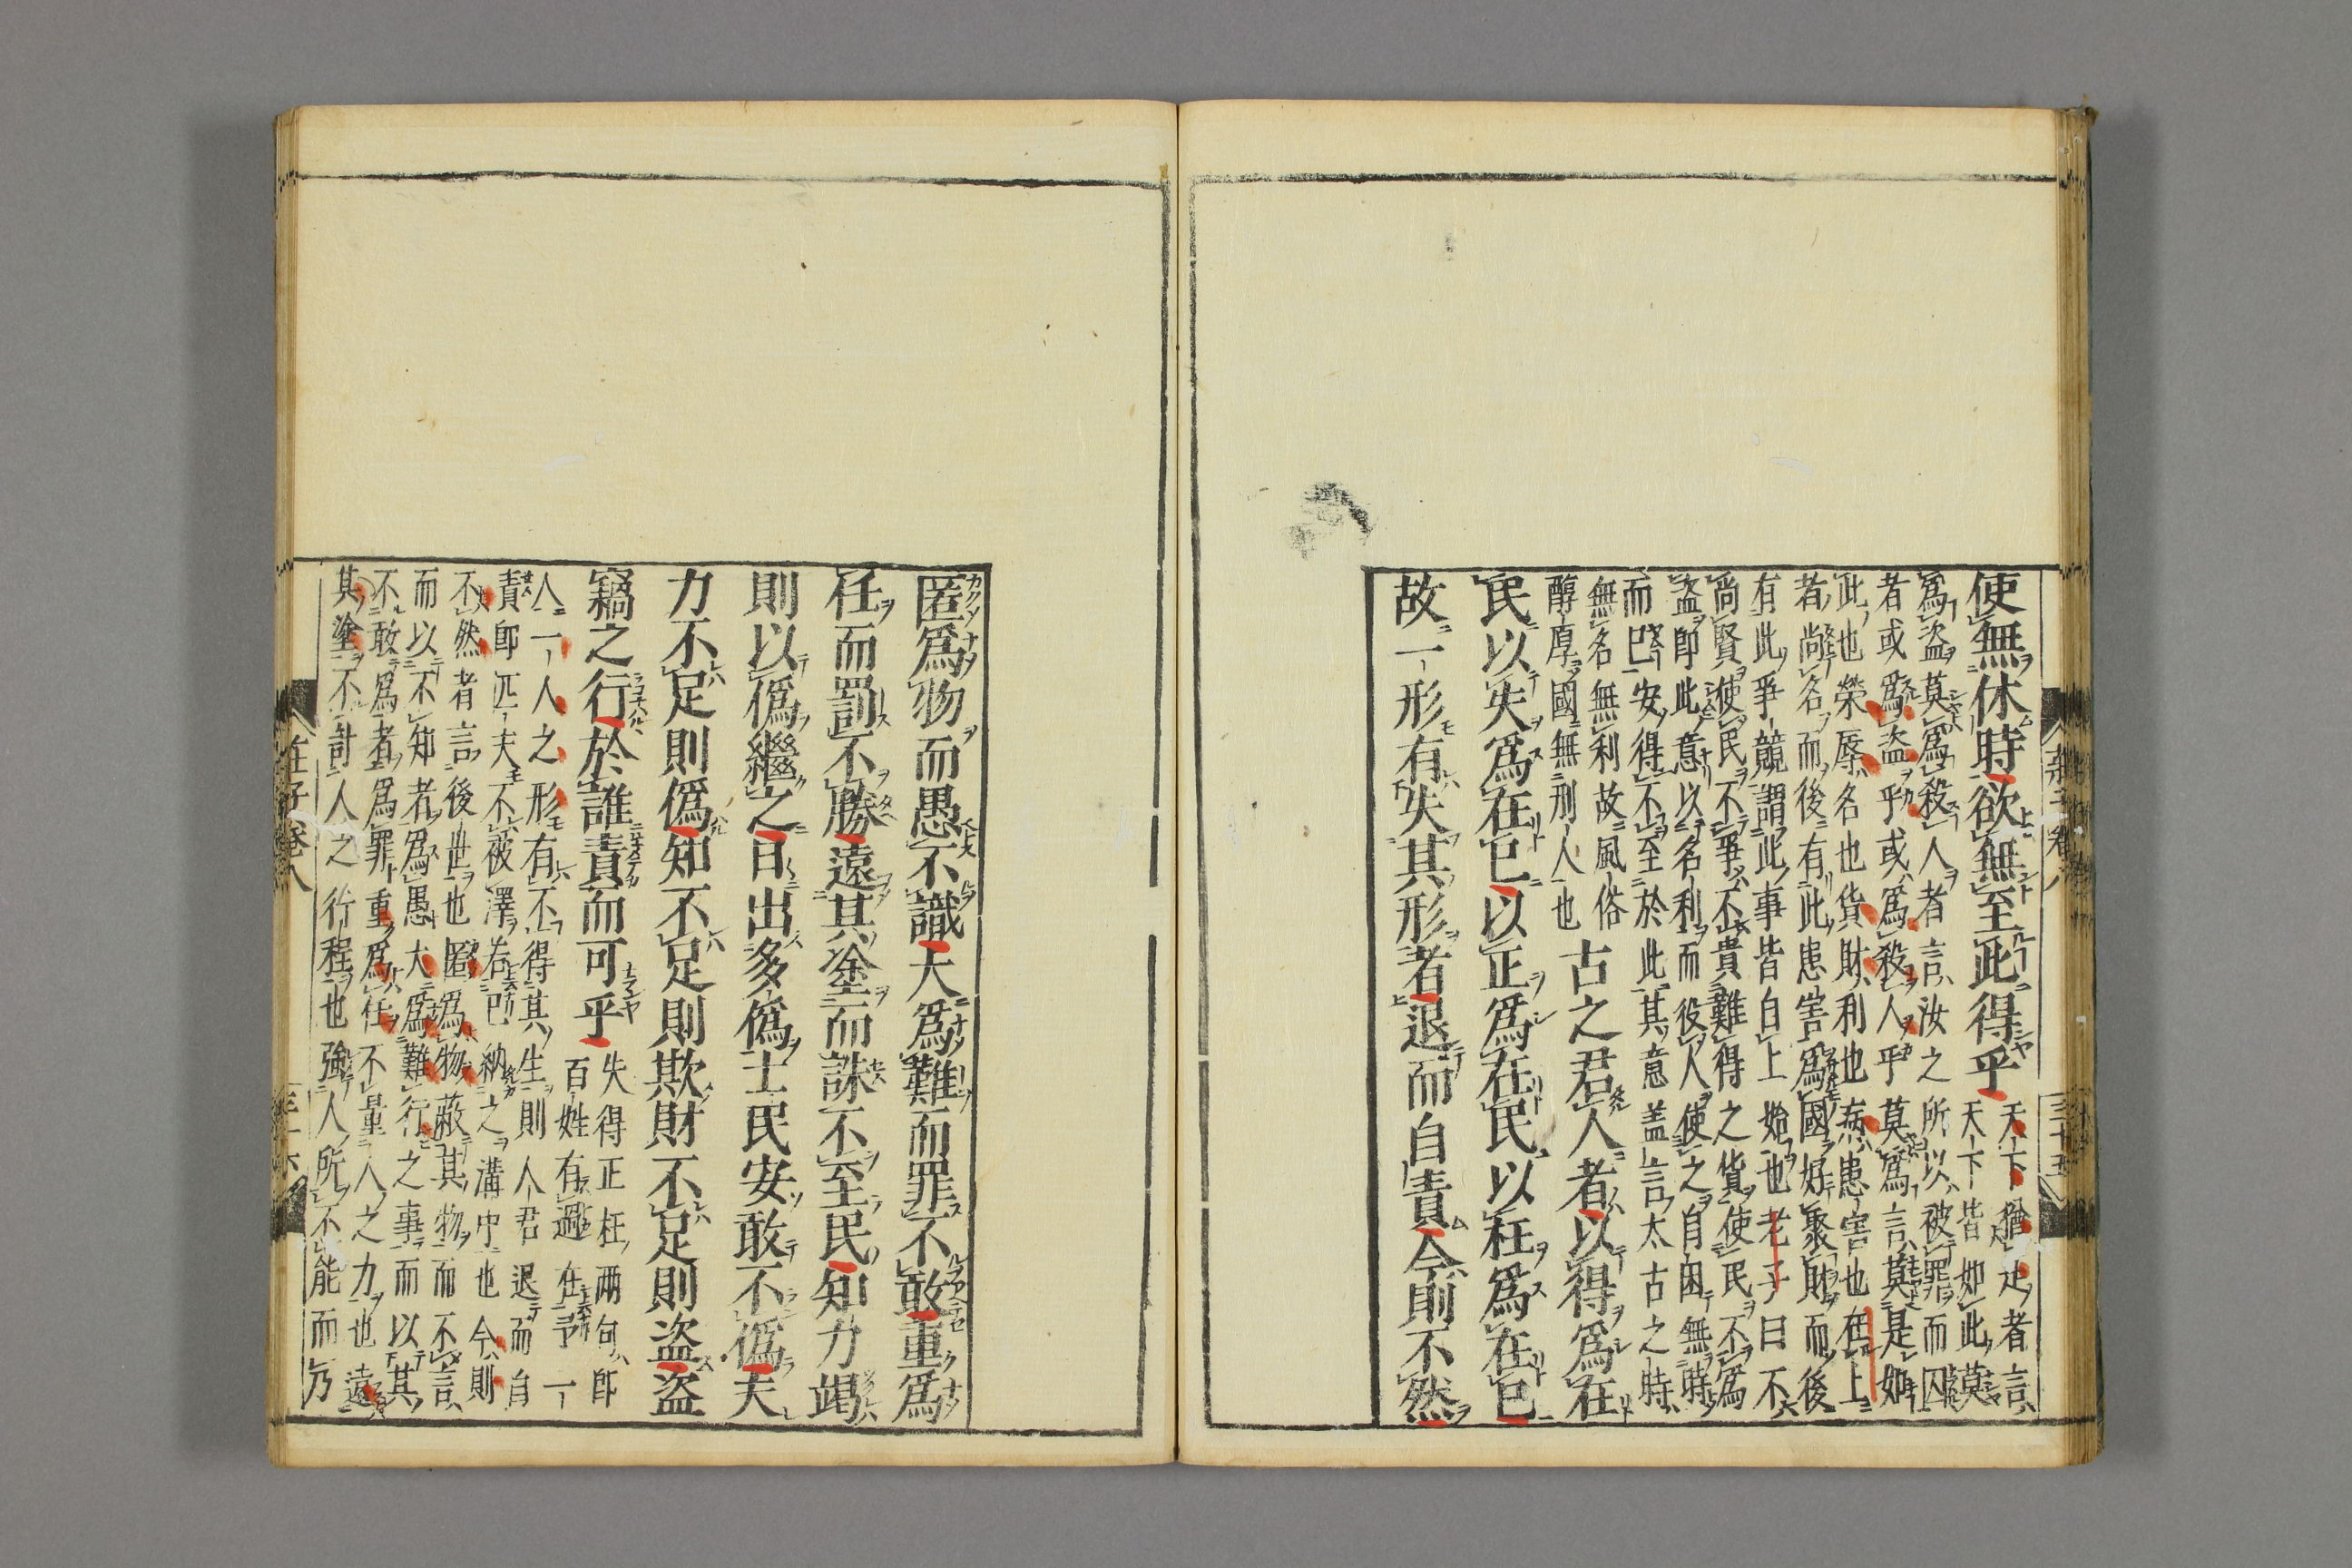 使無休時欲無至此得乎天下猶是者言
天下皆如此莫
爲盜莫爲殺人者言汝之所以被罪而囚
者或爲盜乎或爲殺人乎莫爲言莫是如
此也榮辱名也貨財利也病患害也在上
者尚名而後有此患害爲國好聚財而後
有此爭競謂此事皆自上始也老子曰不
尚賢使民不爭不貴難得之貨使民不爲
盜即此意以名利而役人使之自困無時
而已安得不至於此其意蓋言太古之時
無名無利故風俗
醇厚國無刑人也
古之君人者以得爲在
民以失爲在已以正爲在民以枉爲在已
故一形有失其形者退而自責今則不然
匿爲物而愚不識大爲難而罪不敢重爲
任而罰不勝遠其塗而誅不至民知力竭
則以僞繼之日出多僞士民安敢不僞夫
力不足則僞知不足則欺財不足則盜盜
竊之行於誰責而可乎失得正枉兩句即
百姓有過在予一
人一人之形有不得其生則人君退而自
責即匹夫不被澤若已納之溝中也今則
不然者言後世也匿爲物蔽其物而不言
而以不知者爲愚大爲難行之事而以其
不敢爲者爲罪重爲任不量人之力也遠
其塗不計人之行程也強人所不能而乃
莊子卷八
三十六
三十五